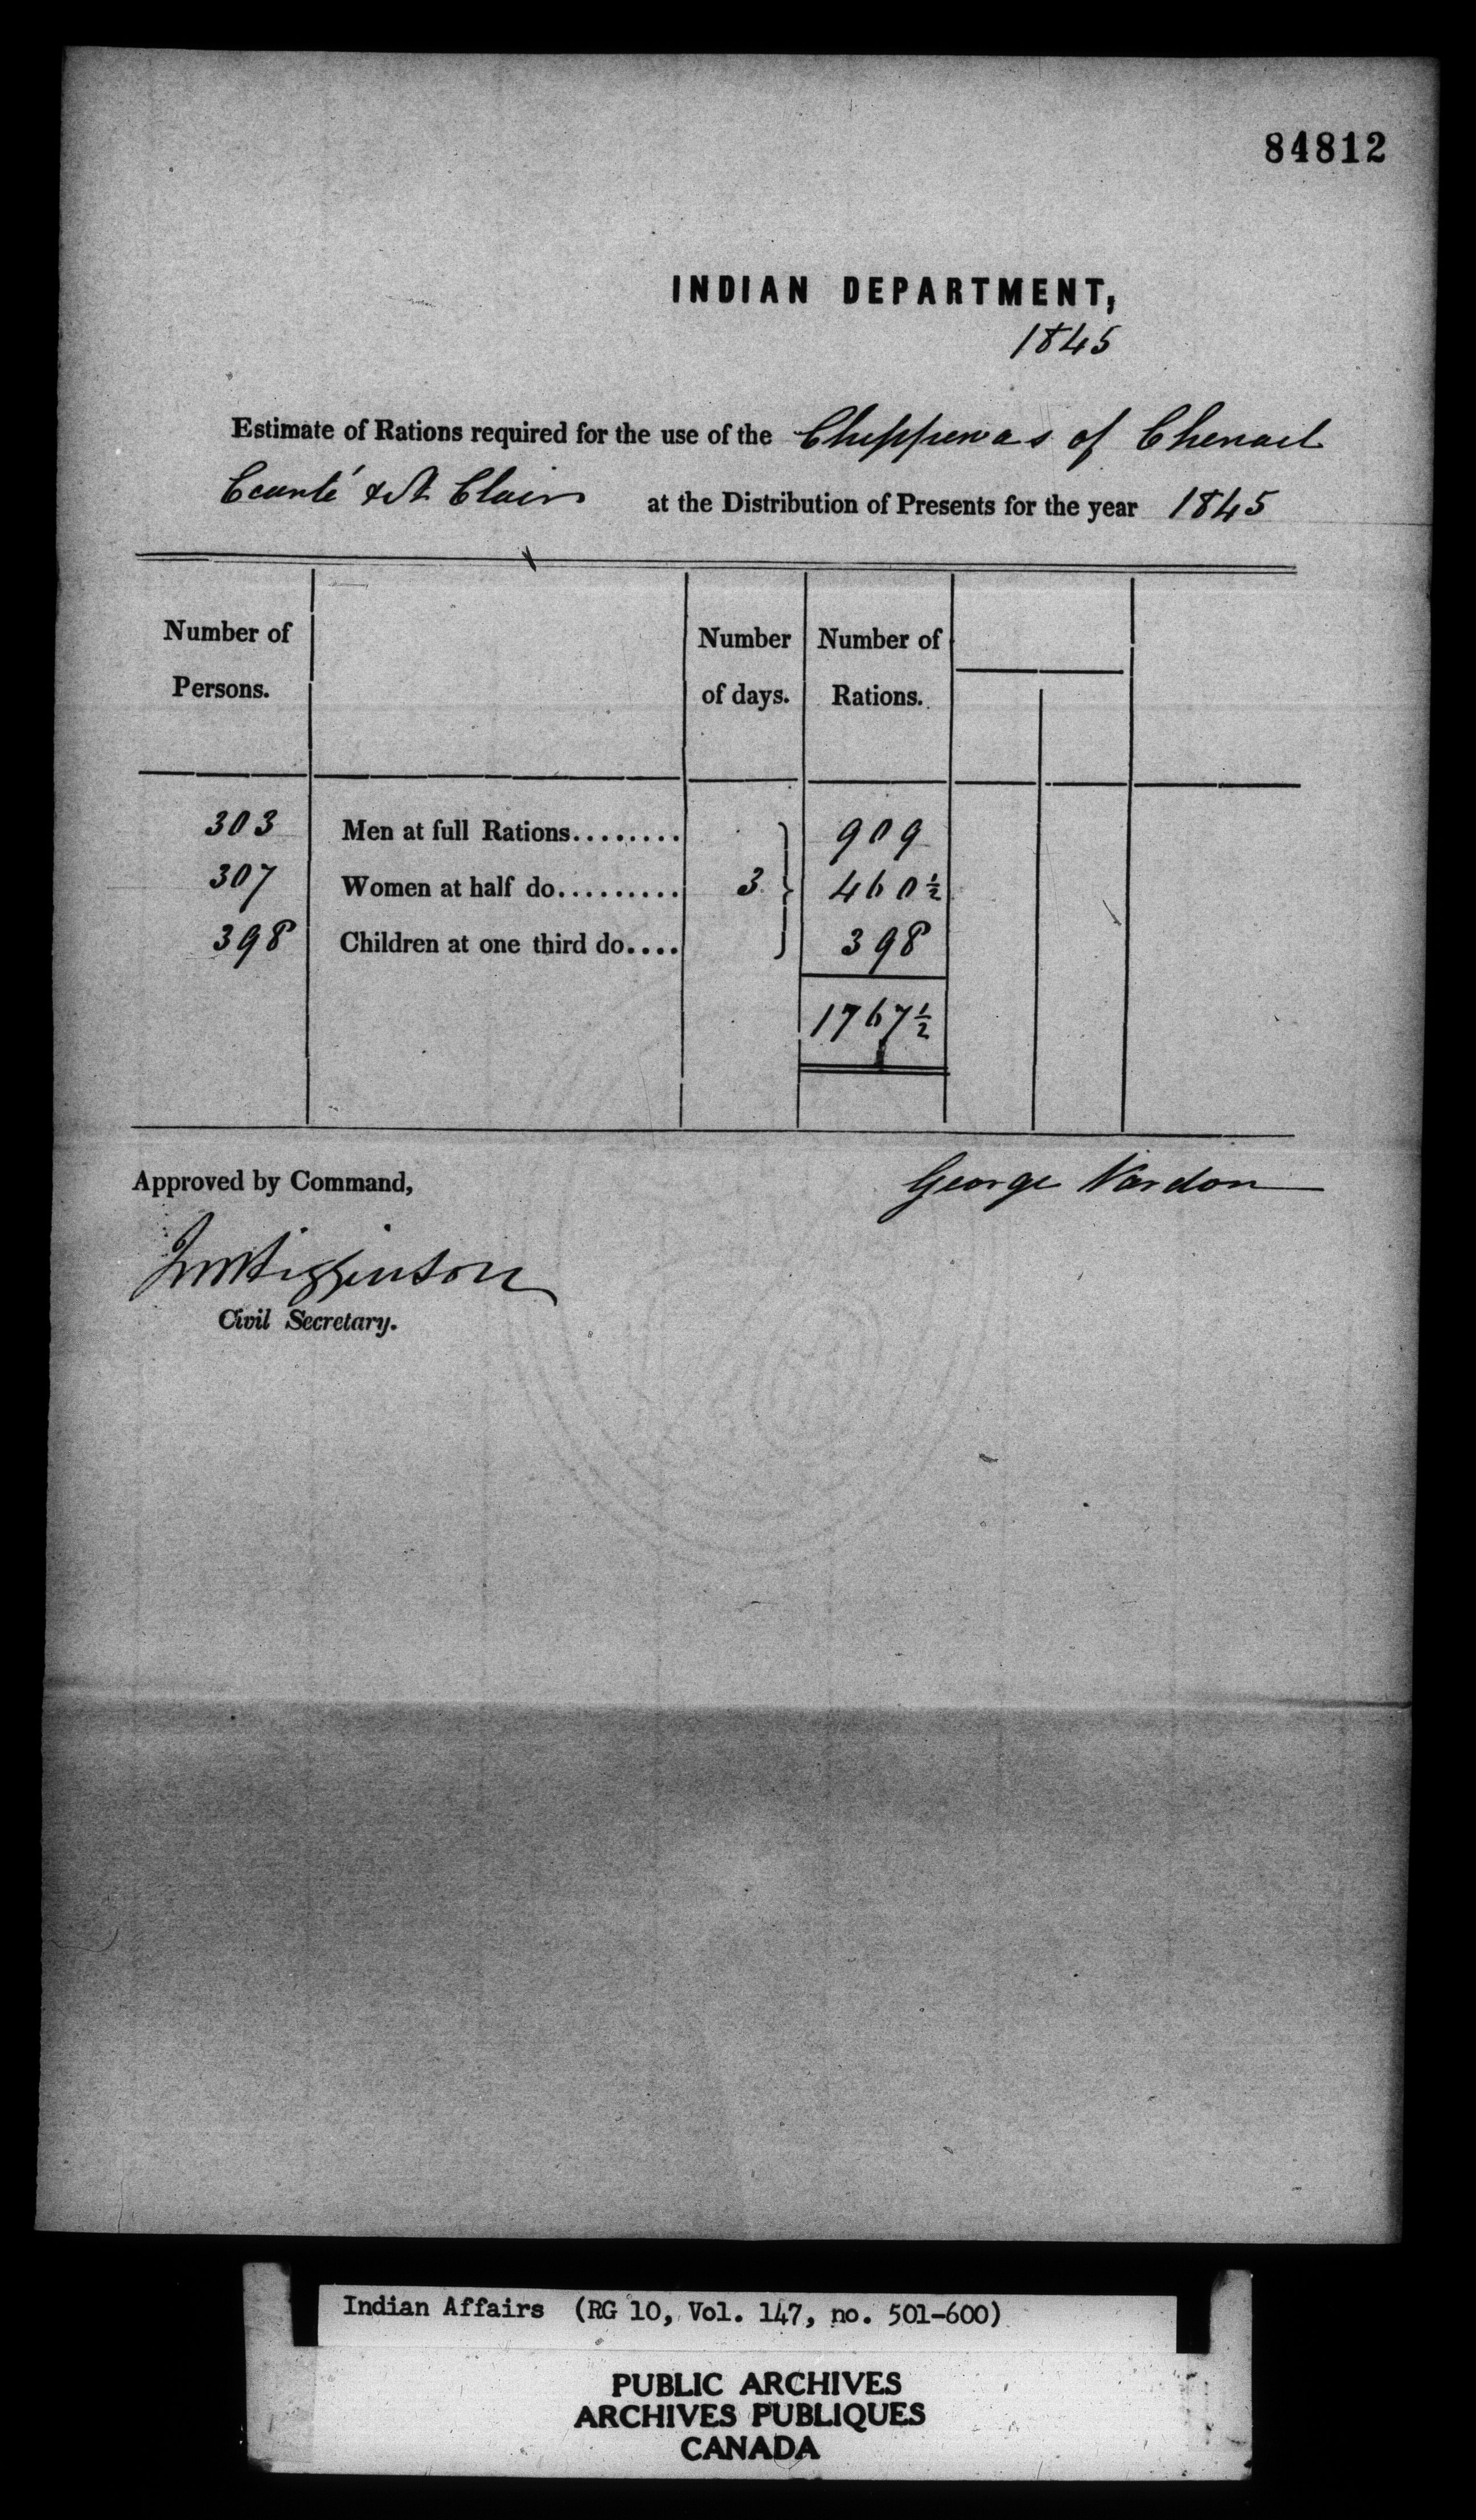 84812
INDIAN DEPARTMENT,
1845
Estimate of Rations required for the use of the Chippewas of Chenail
Ecarté & St Clair at the Distribution of Presents for the year 1845
Number of Persons. Number of days. Number of Rations.
303 Men at full Rations........ 909
307 Women at half do......... 3 460 ½
398 Children at one third do.... 398
1767 ½
Approved by Command, George Vardon
JM Higginson
Civil Secretary.
Indian Affairs (RG 10, Vol. 147, no. 501-600)
PUBLIC ARCHIVES
ARCHIVES PUBLIQUES
CANADA